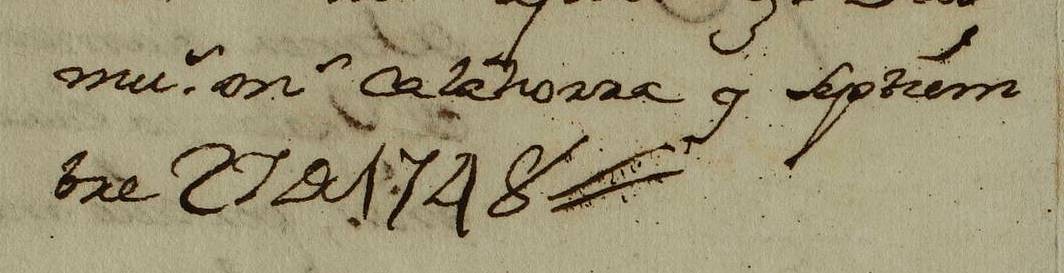 mu.ˢ an.ˢ Calahorra y Septiem
bre 27 de 1748